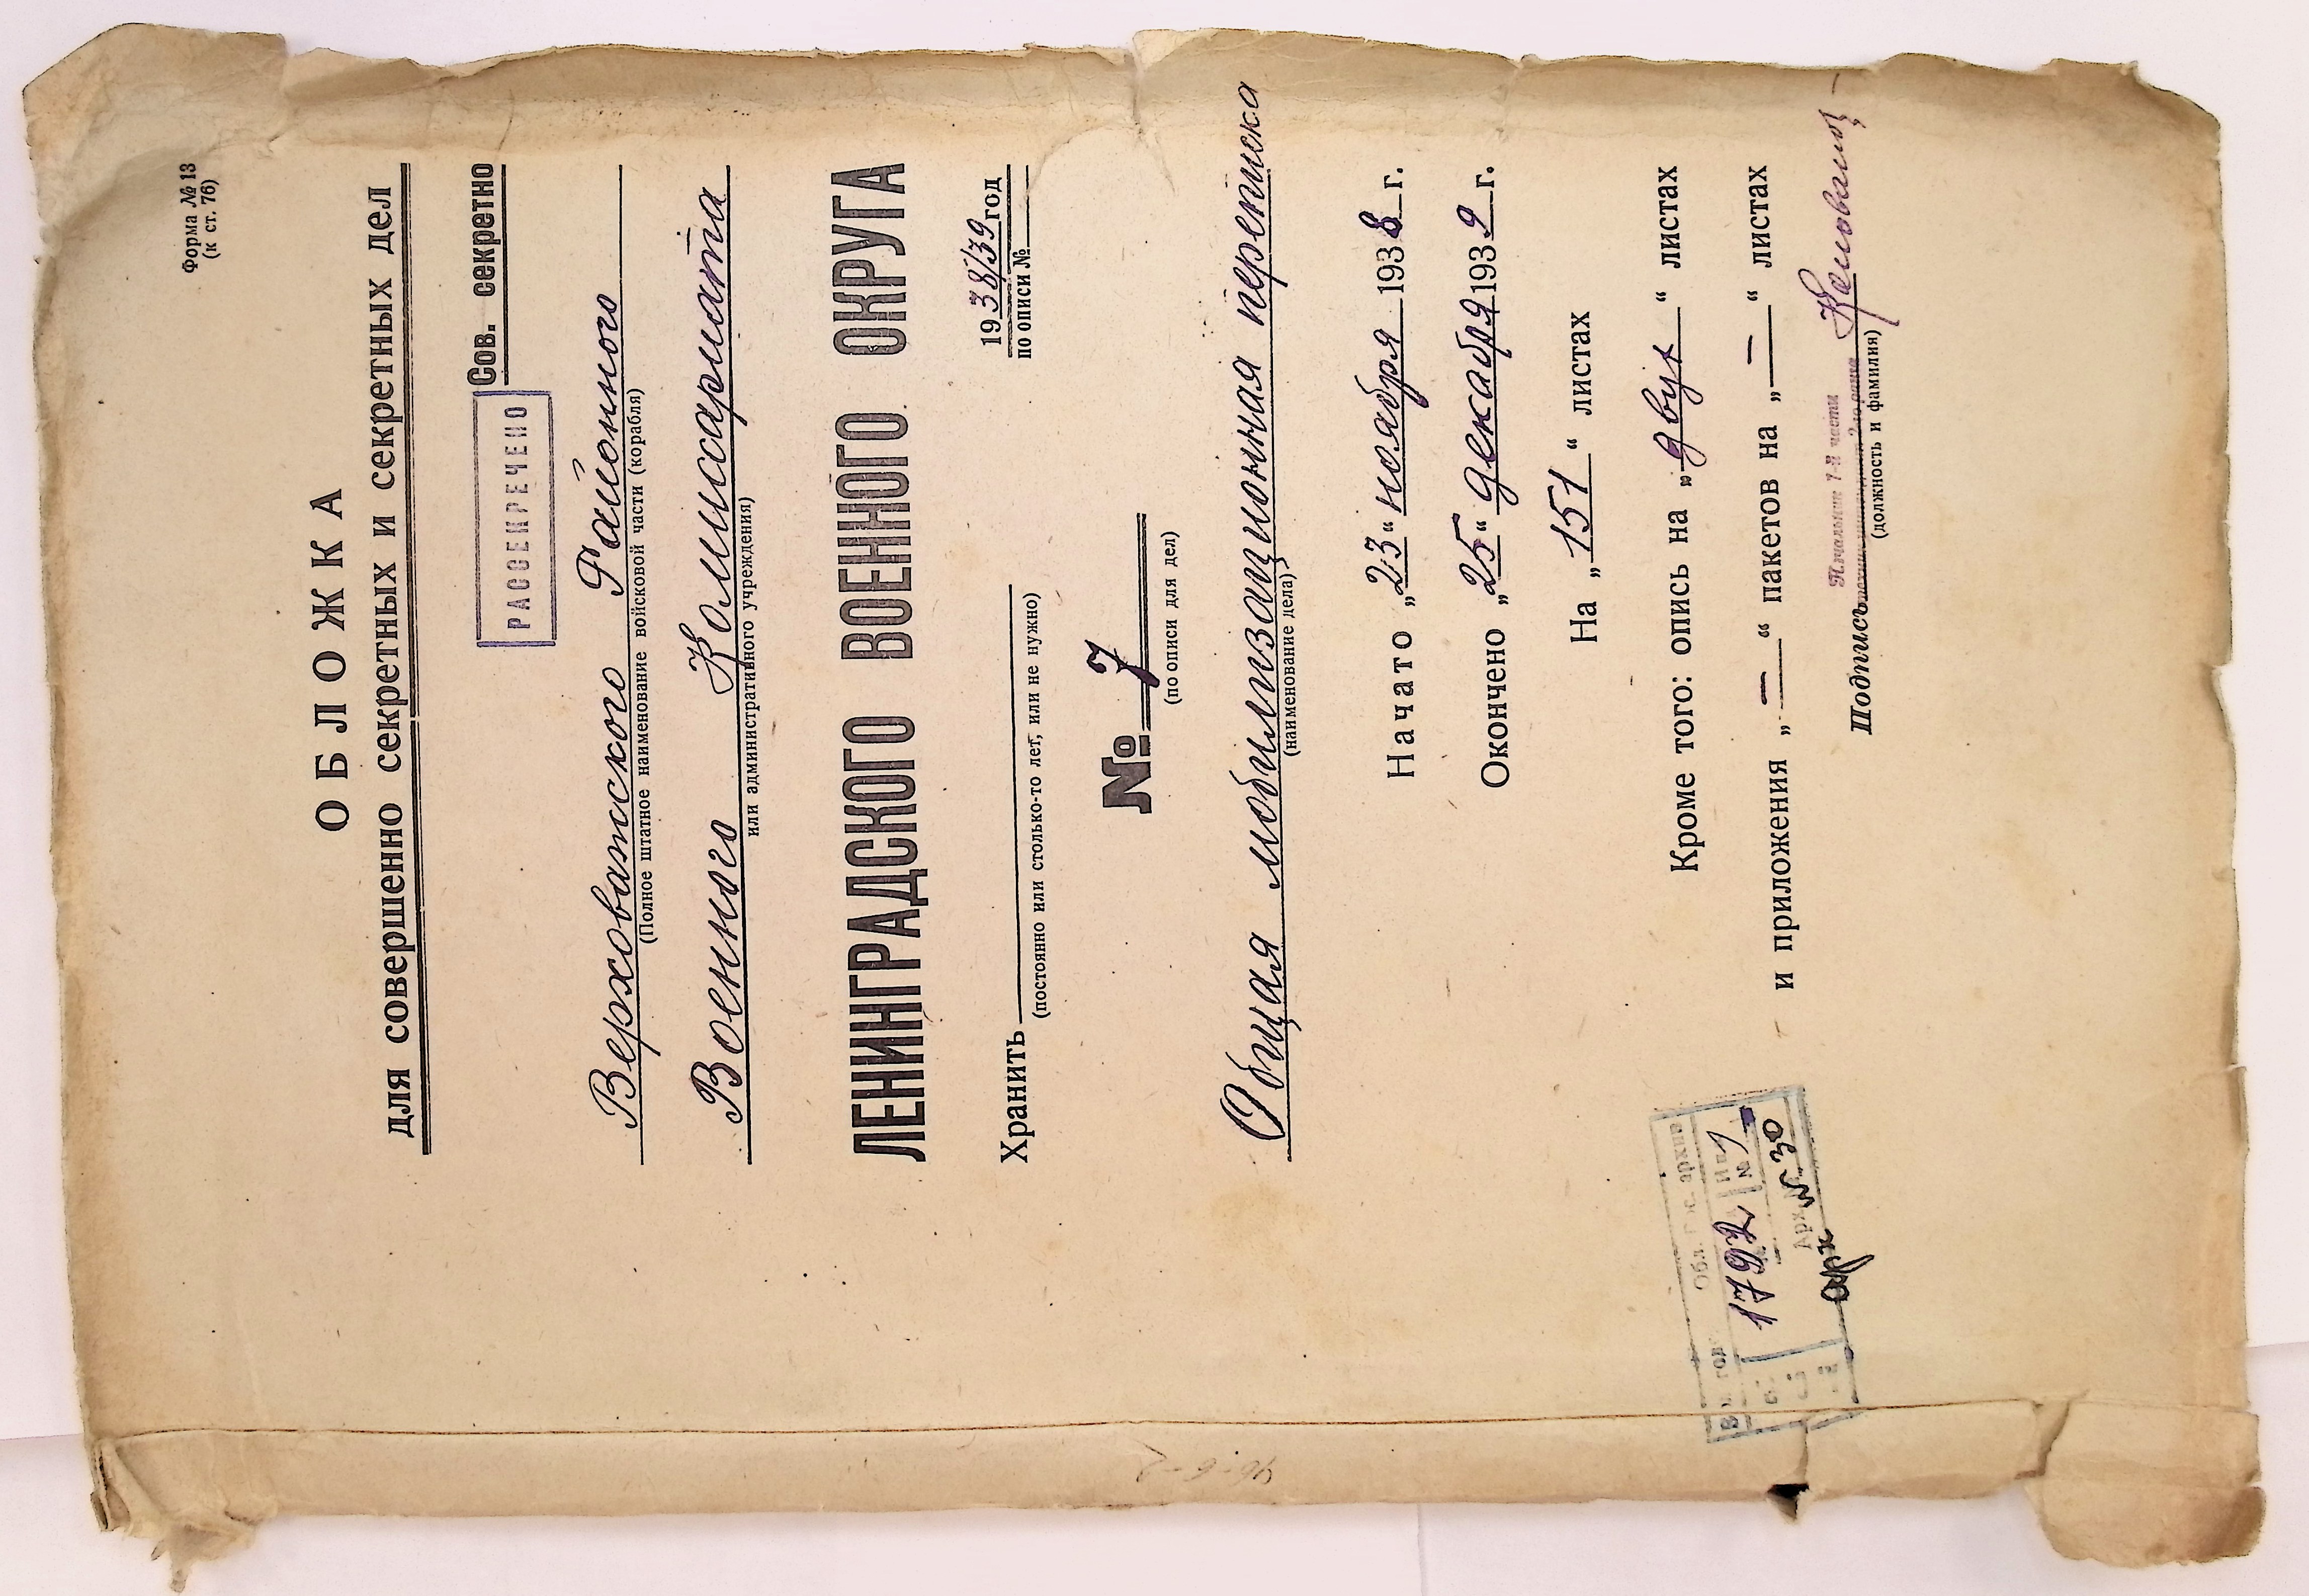 Форма № 13
(к ст. 76)
ОБЛОЖКА
для совершенно секретных и секретных дел
Сов. секретно
РАССЕКРЕЧЕНО
Верховажского Районного
(Полное штатное наименование войсковой части (корабля)
Военного Комиссариата
или административного учреждения)
ЛЕНИНГРАДСКОГО ВОЕННОГО ОКРУГА
1938/39 год
по описи №
Хранить
(постоянно или столько-то лет, или не нужно)
№ 7
(по описи для дел)
Общая мобилизационная переписка
(наименование дела)
Начато „23“ ноября 1938 г.
Окончено „25“ декабря 1939 г.
На „151“ листах
Кроме того: опись на „двух“ листах
и приложения „—“ пакетов на „—“ листах
Начальник 1-й части
Подпись
(должность и фамилия)
Обл. архив
1792 № 1
Арх № 30
арх
46-6-2